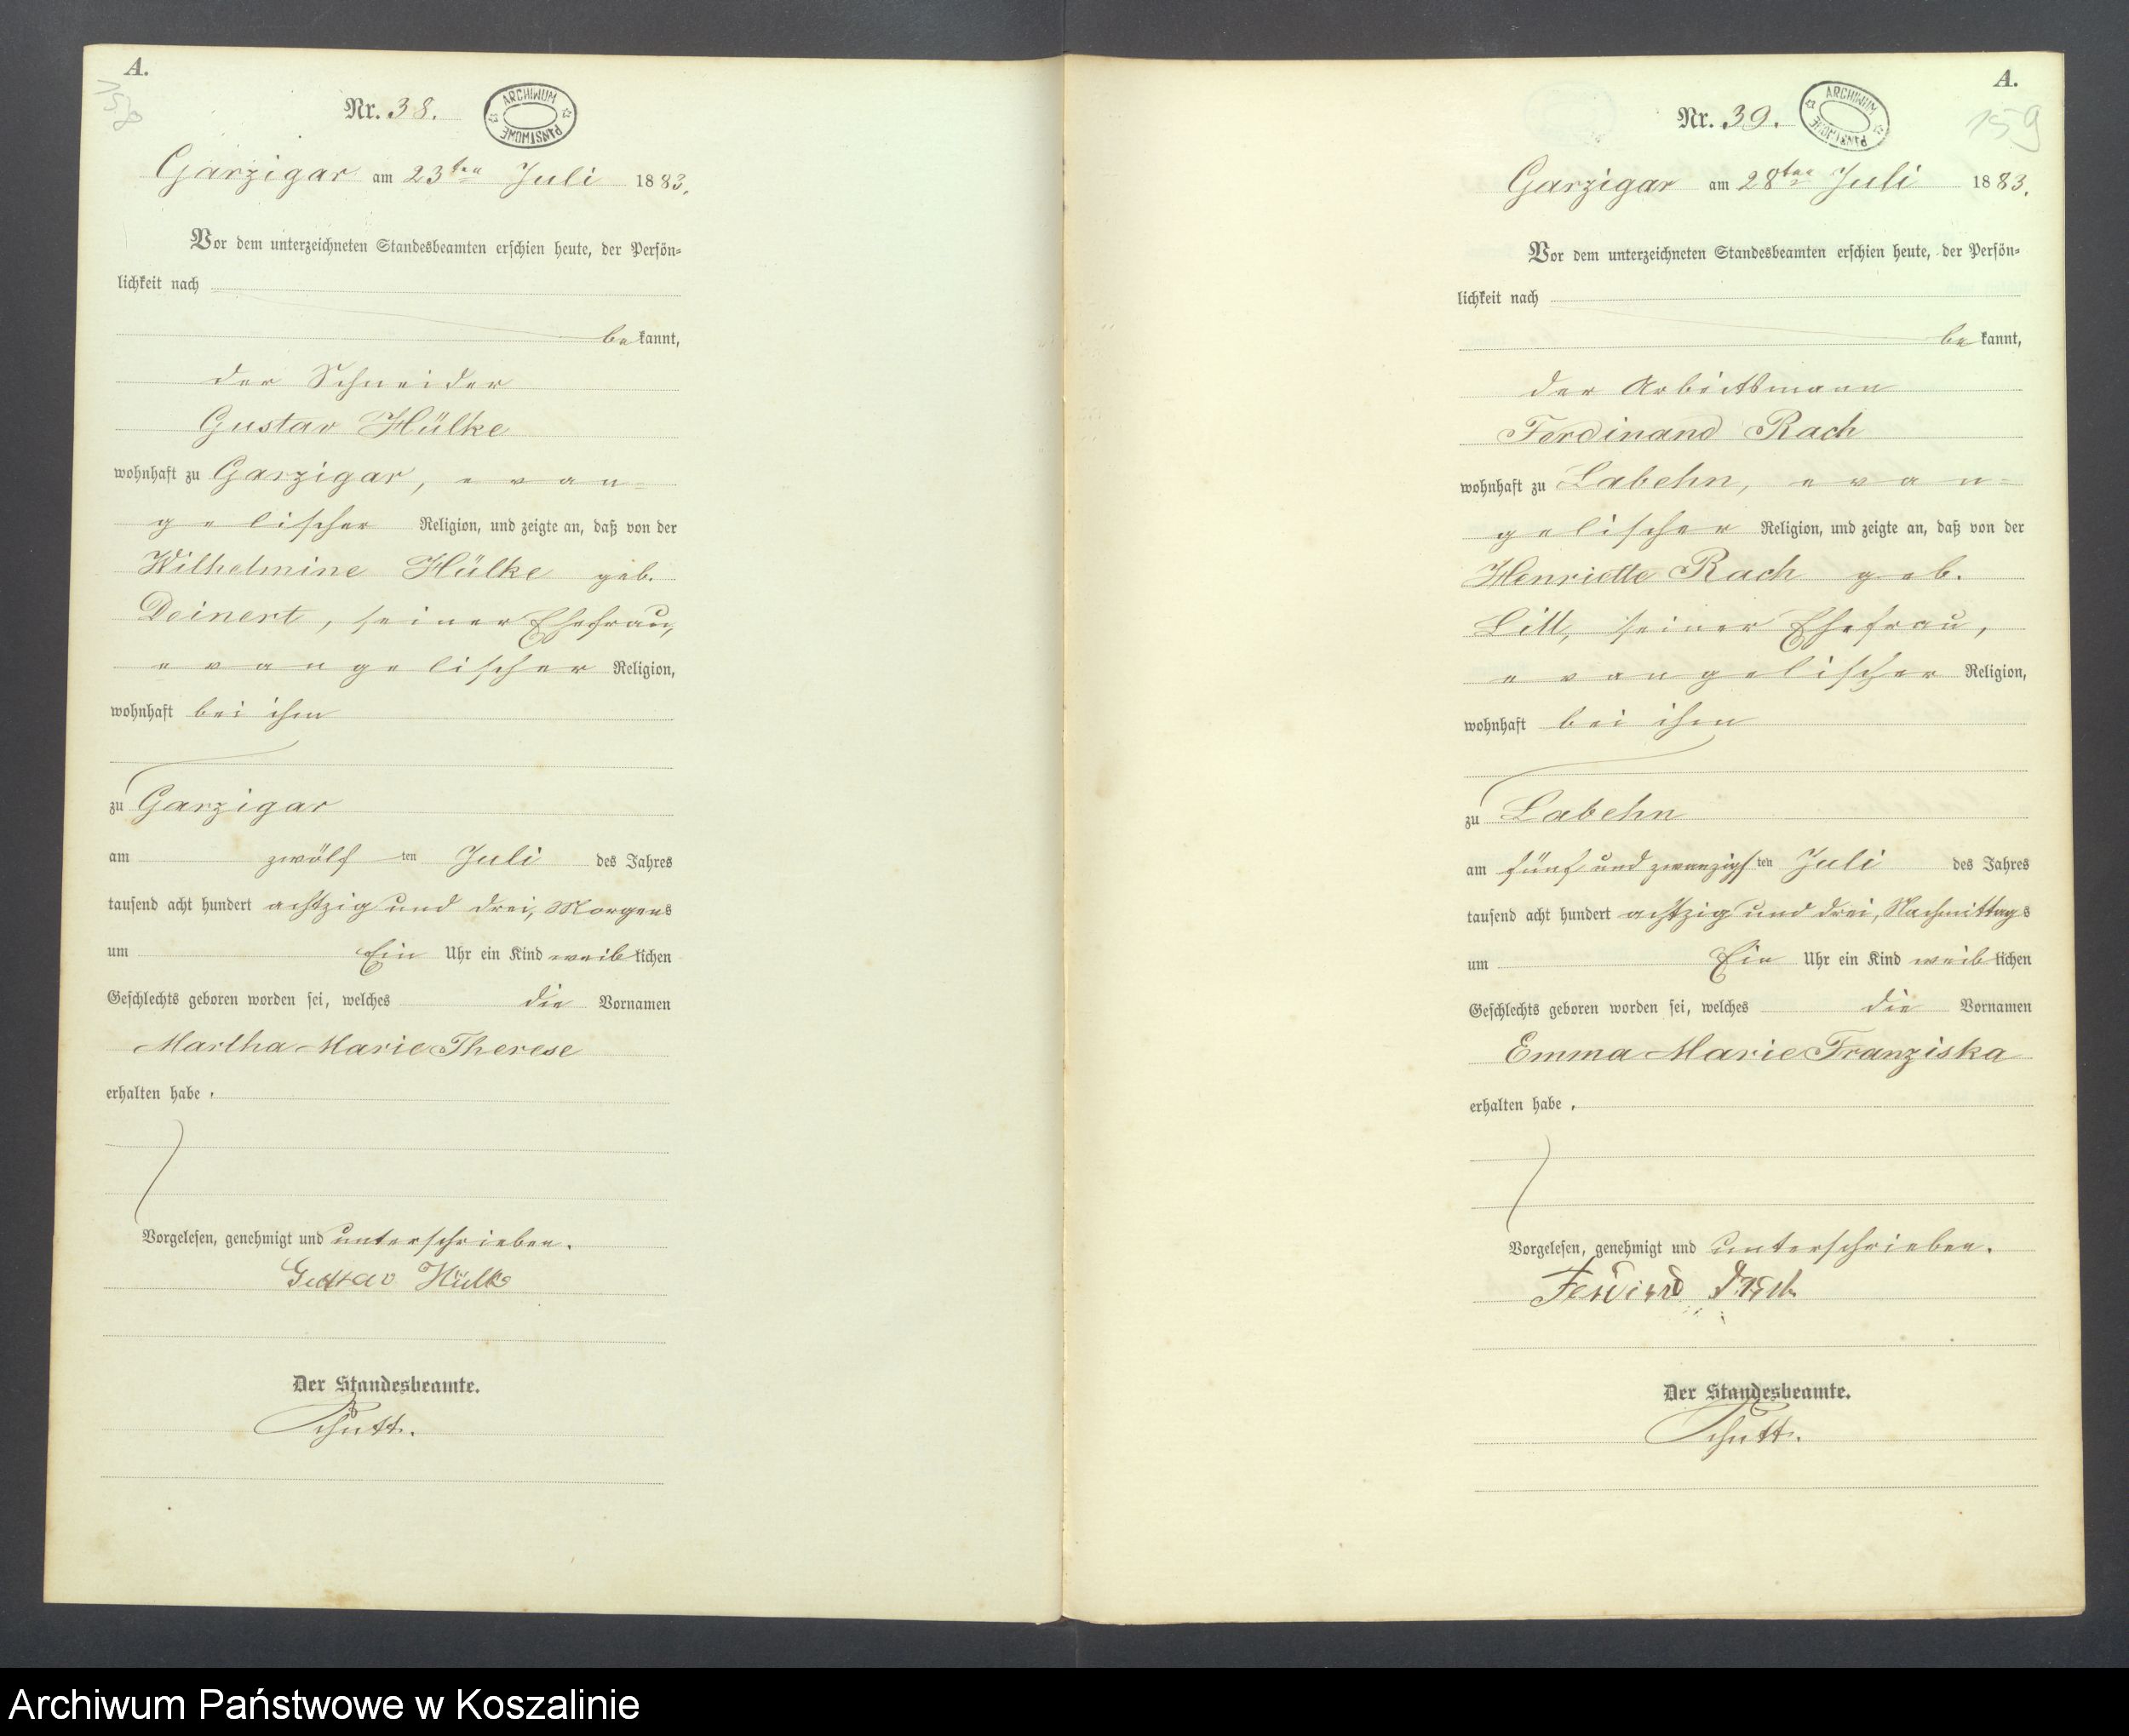 A.
158
Nr. 38.
ARCHIWUM PAŃSTWOWE
Garzigar am 23ten Juli 1883.
Vor dem unterzeichneten Standesbeamten erschien heute, der Persön-
lichkeit nach
bekannt,
der Schneider
Gustav Hülke
wohnhaft zu Garzigar, evan-
gelischer Religion, und zeigte an, daß von der
Wilhelmine Hülke geb.
Deinert, seiner Ehefrau,
evangelischer Religion,
wohnhaft bei ihm
zu Garzigar
am zwölf ten Juli des Jahres
tausend acht hundert achtzig und drei, Morgens
um Ein Uhr ein Kind weiblichen
Geschlechts geboren worden sei, welches die Vornamen
Martha Marie Therese
erhalten habe.
Vorgelesen, genehmigt und unterschrieben.
Gustav Hülke
Der Standesbeamte.
Schutt.
A.
159
Nr. 39.
ARCHIWUM PAŃSTWOWE
Garzigar am 28ten Juli 1883.
Vor dem unterzeichneten Standesbeamten erschien heute, der Persön-
lichkeit nach
bekannt,
der Arbeitsmann
Ferdinand Rach
wohnhaft zu Labehn, evan-
gelischer Religion, und zeigte an, daß von der
Henriette Rach geb.
Litt, seiner Ehefrau,
evangelischer Religion,
wohnhaft bei ihm
zu Labehn
am fünf und zwanzigsten Juli des Jahres
tausend acht hundert achtzig und drei, Nachmittags
um Ein Uhr ein Kind weiblichen
Geschlechts geboren worden sei, welches die Vornamen
Emma Marie Franziska
erhalten habe.
Vorgelesen, genehmigt und unterschrieben.
Der Standesbeamte.
Schutt.
Archiwum Państwowe w Koszalinie